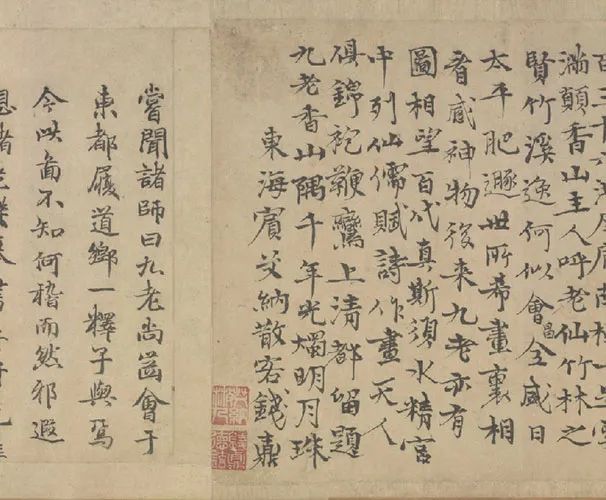 百三十
滿顛香山主人呼老仙竹林之
賢竹溪逸何似會昌全盛日
太平肥遯世所希畫裏相
看感神物後來九老亦有
圖相望百代真斯須水精宮
中列仙儒賦詩作畫天人
俱錦袍鞭鸞上清都留題
九老香山隅千年光燭明月珠
東海賓交納散客錢鼐
嘗聞諸師曰九老尚齒會于
東都履道鄉一釋子與焉
今此啚不知何稽而然邪遐